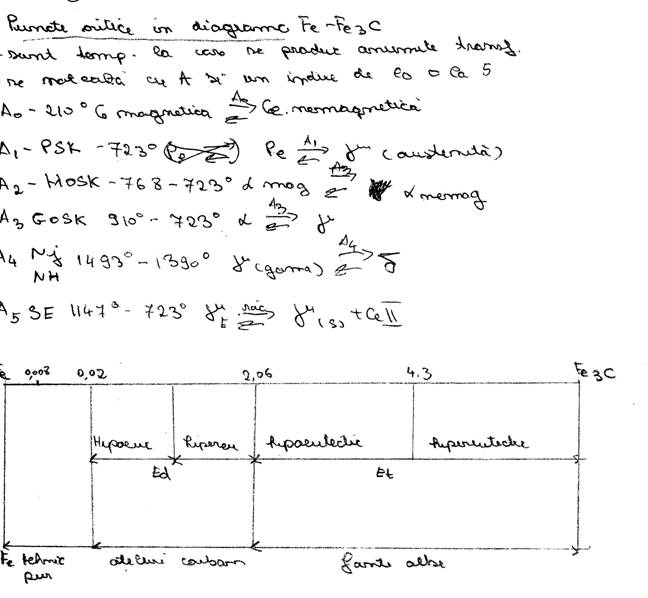 Puncte critice în diagrama Fe-Fe3C
- sunt temp. la care se produc anumite transf.
se notează cu A și un indice de la 0 la 5
A0 - 210° Ce magnetica A0 ⇌ Ce. nemagnetică
A1 - PSK - 723° Pe A1 ⇌ γ (austenită)
A2 - MOSK - 768 - 723° α mag A2 ⇌ α nemag
A3 GOSK 910° - 723° α A3 ⇌ γ
A4 NJ NH 1493° - 1390° γ (gama) A4 ⇌ δ
A5 SE 1147° - 723° γE răc ⇌ γ(S) + CeII
Fe 0,008 0,02 2,06 4.3 Fe3C
Hipoeut hipereu hipoeutectic hipereutectic
Ed Et
Fe tehnic pur oțeluri carbon fonte albe